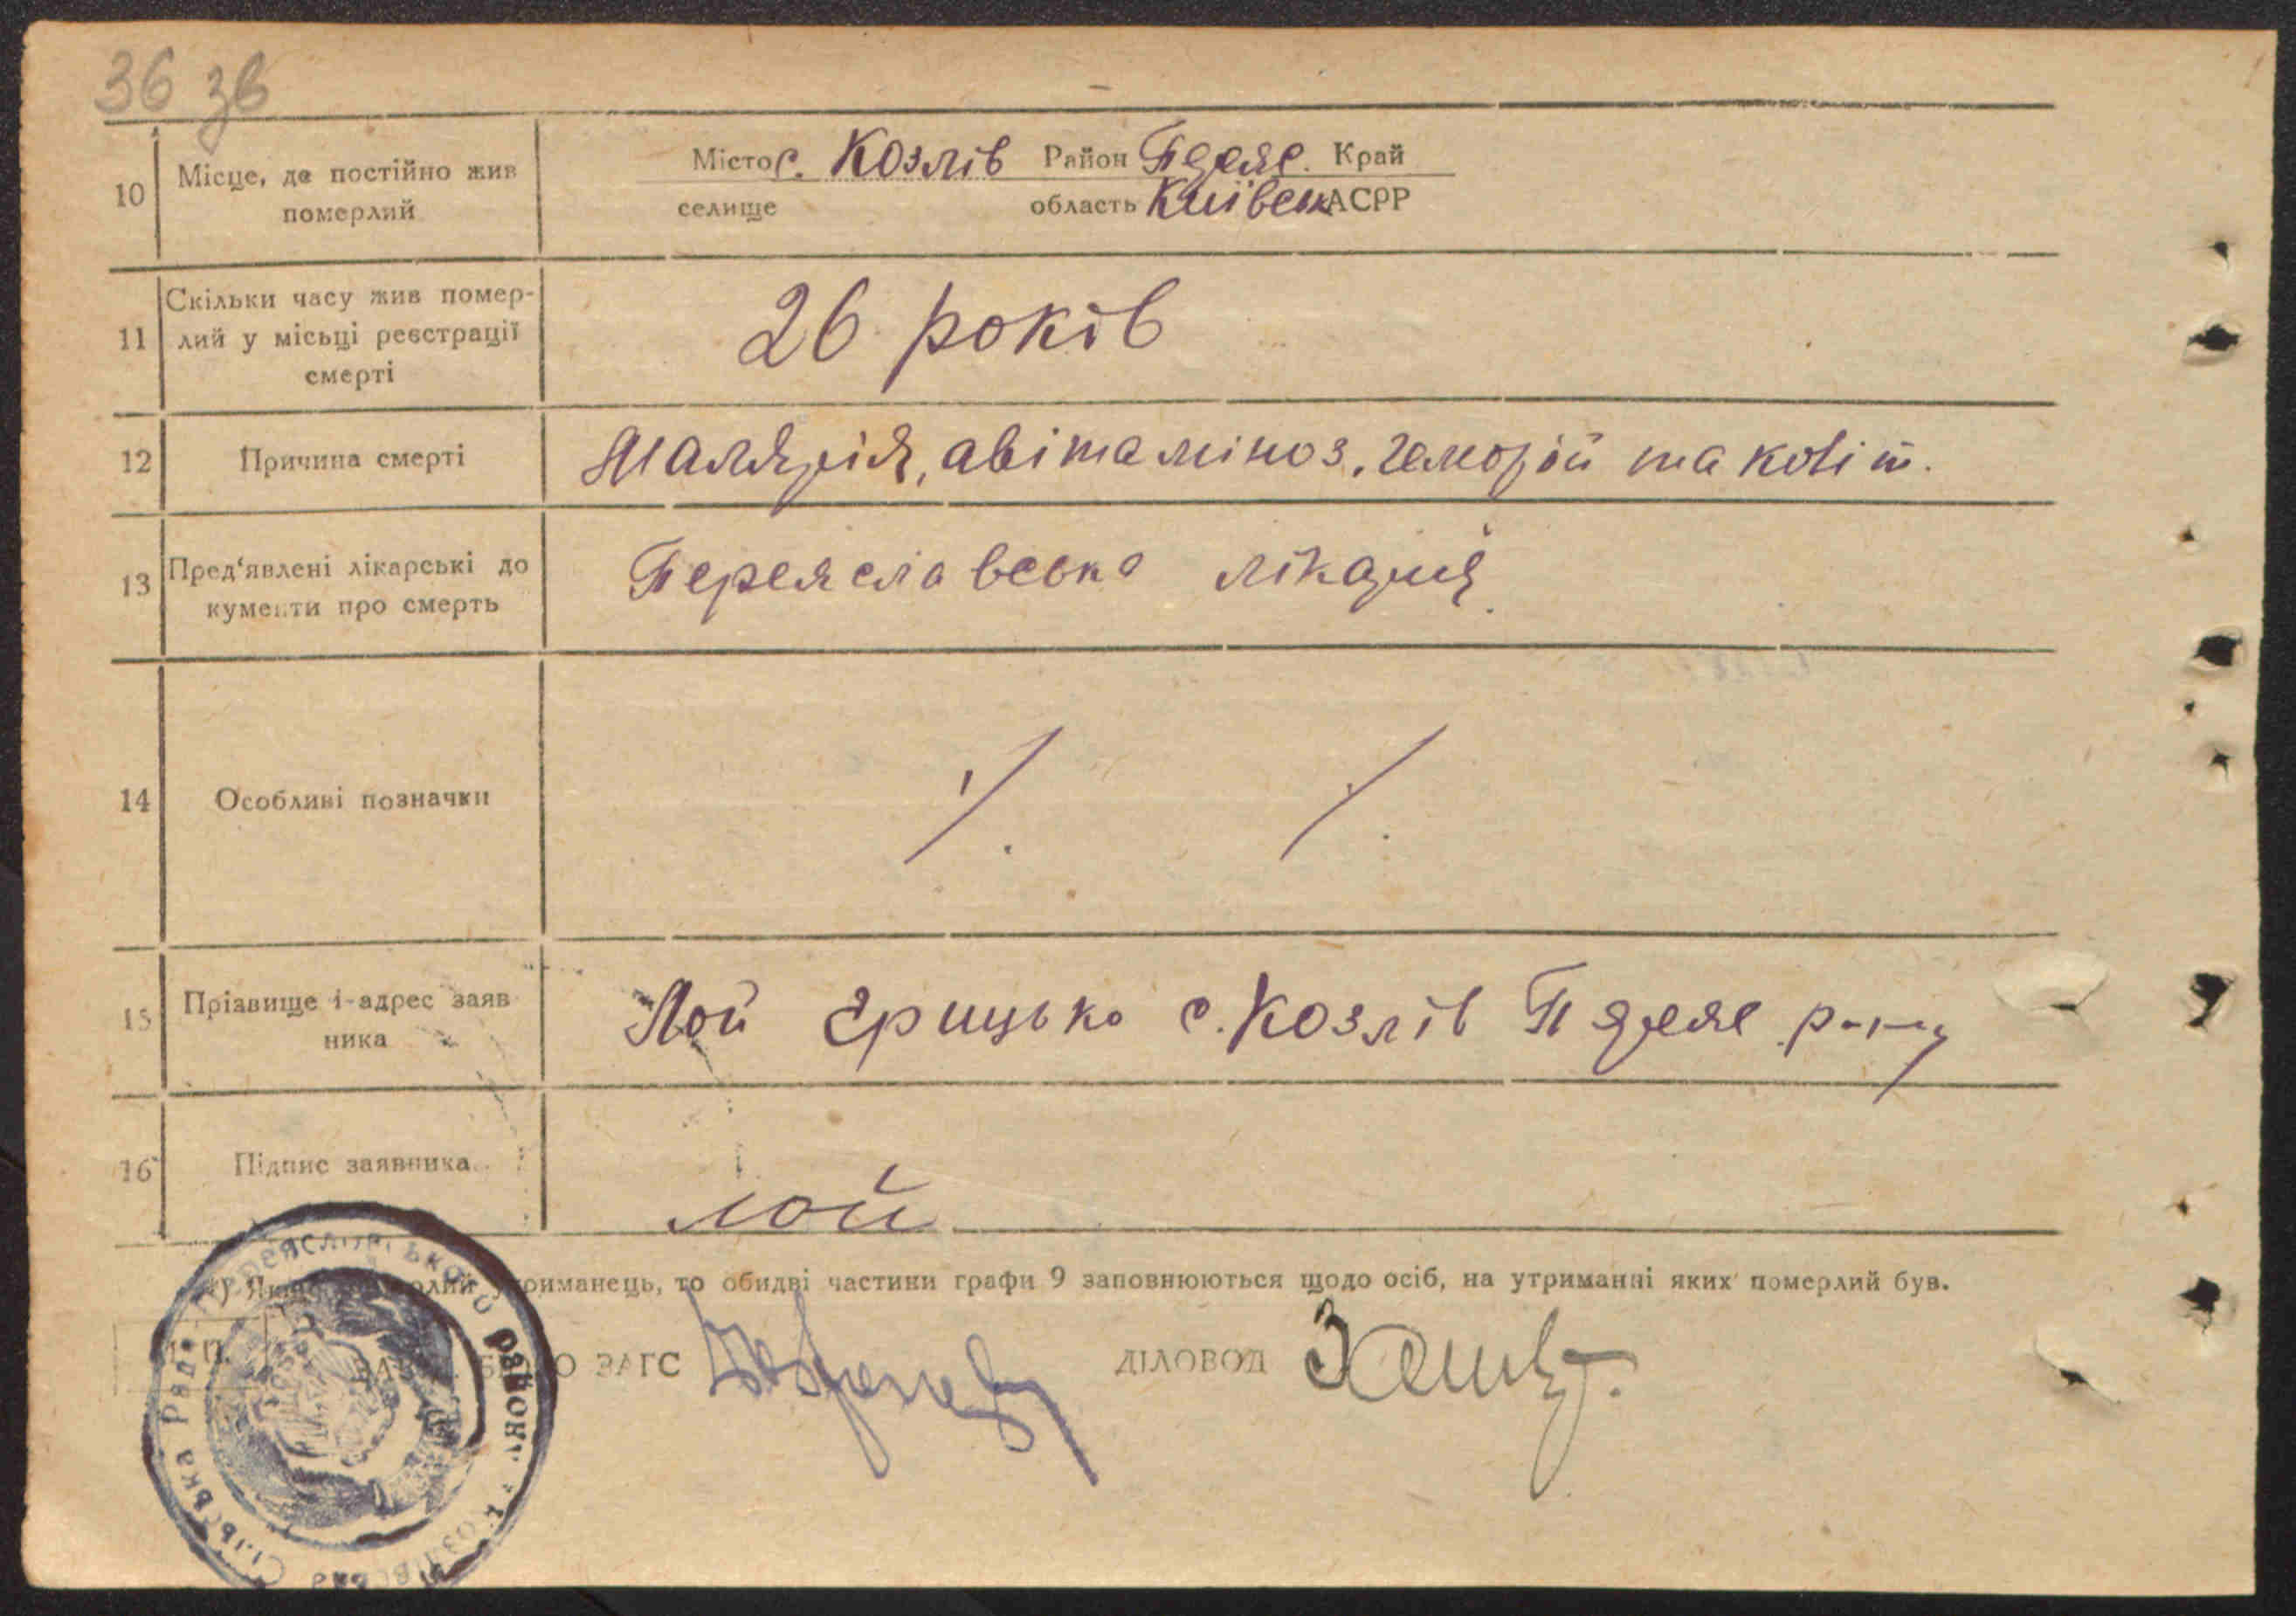 36 зв
10 Місце, де постійно жив померлий
Місто с. Козлів Район Переяс. Край
селище область Київськ АСРР
11 Скільки часу жив помер-
лий у місьці реєстрації
смерті
26 років
12 Причина смерті
Малярія, авітаміноз, геморой та коліт.
13 Пред'явлені лікарські до
кументи про смерть
Переяславська лікарня
14 Особливі позначки
15 Прізвище і адрес заяв
ника
Лой Грицько с. Козлів Переяс р-ну
16 Підпис заявника
Лой
*) Якщо померлий утриманець, то обидві частини графи 9 заповнюються щодо осіб, на утриманні яких померлий був.
М. П.
ЗАВ. БЮРО ЗАГС
ДІЛОВОД
Переяславського району Козлівська Сільська Рада